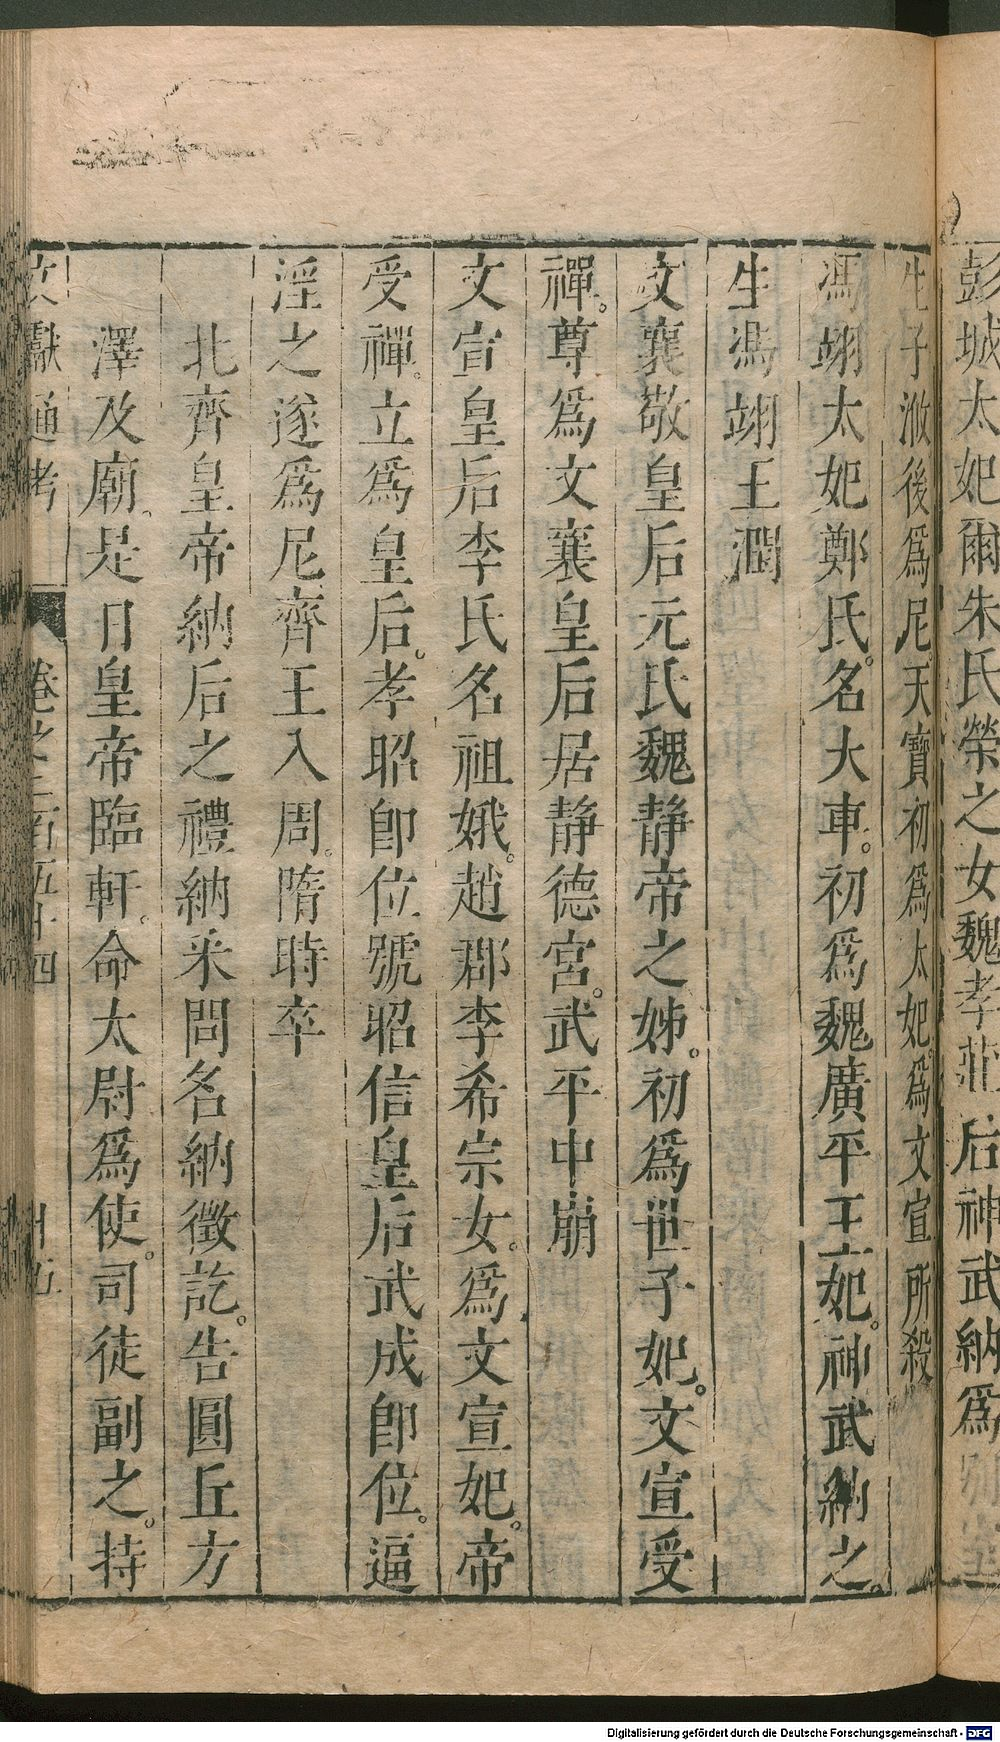 彭城太妃爾朱氏榮之女魏孝莊后神武納爲
生子浟後爲尼天寶初爲太妃爲文宣所殺
馮翊太妃鄭氏。名大車。初爲魏廣平王妃。神武納之。
生馮翊王潤
文襄敬皇后元氏魏靜帝之姊。初爲世子妃。文宣受
禪。尊爲文襄皇后居靜德宮。武平中崩
文宣皇后李氏名祖娥。趙郡李希宗女。爲文宣妃。帝
受禪。立爲皇后。孝昭卽位號昭信皇后武成卽位。逼
淫之遂爲尼齊王入周。隋時卒
北齊皇帝納后之禮納采問名納徵訖。告圓丘方
澤及廟。是日皇帝臨軒。命太尉爲使。司徒副之。持
文獻通考 卷之二百五十四 十五
Digitalisierung gefördert durch die Deutsche Forschungsgemeinschaft - DFG